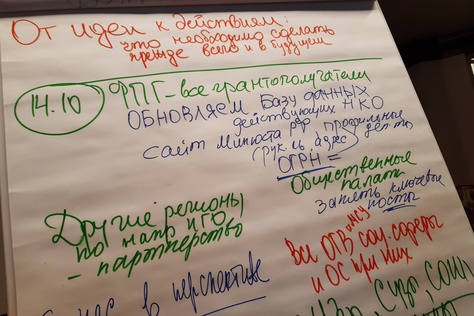 От идеи к действиям:
что необходимо сделать
прежде всего и в будущем
14.10
ФПГ - все грантополучатели
Обновляем Базу данных
действующих НКО
сайт Минюста РФ профильные
рук-ль, адрес
ОГРН =
Общественные
палаты
занять ключевые
посты
Другие регионы
по напр НГО
- партнерство
Все ОГВ МСУ соц. сферы
и ОС при них
в перспективе